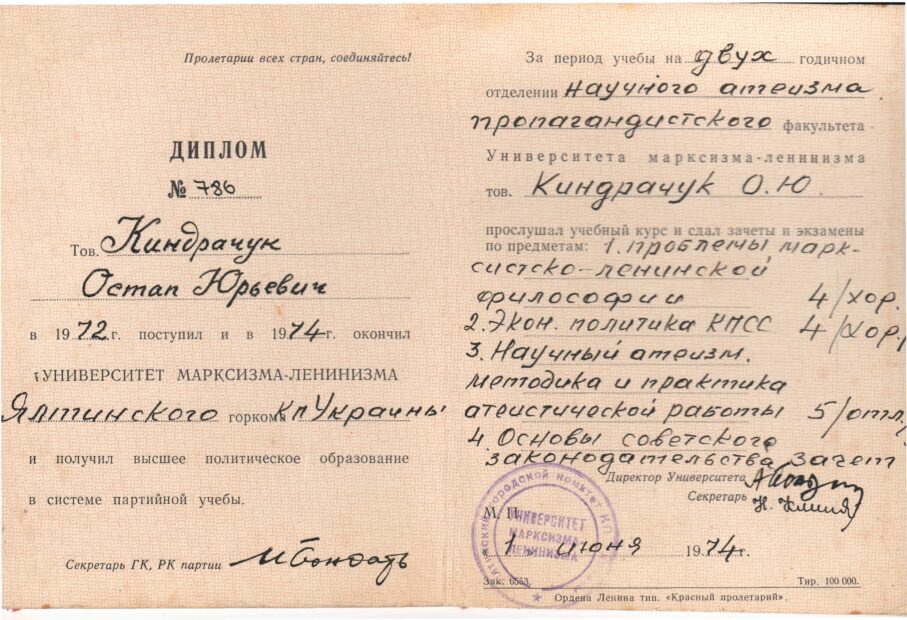 Пролетарии всех стран, соединяйтесь!
ДИПЛОМ
№ 786
Тов. Киндрачук
Остап Юрьевич
в 1972 г. поступил и в 1974 г. окончил
УНИВЕРСИТЕТ МАРКСИЗМА-ЛЕНИНИЗМА
Ялтинского горком КП Украины
и получил высшее политическое образование
в системе партийной учебы.
Секретарь ГК, РК партии
За период учебы на двух годичном
отделении научного атеизма
пропагандистского факультета
Университета марксизма-ленинизма
тов. Киндрачук О.Ю.
прослушал учебный курс и сдал зачеты и экзамены
по предметам: 1. проблемы марк-
систско-ленинской
философии 4/хор.
2. Экон. политика КПСС 4/хор.
3. Научный атеизм.
методика и практика
атеистической работы 5/отл.
4 Основы советского
законодательства зачет
Директор Университета
Секретарь
М. П.
УНИВЕРСИТЕТ
МАРКСИЗМА-
ЛЕНИНИЗМА
1. июня 1974 г.
Зак. 6553. Тир. 100 000.
Ордена Ленина тип. «Красный пролетарий».